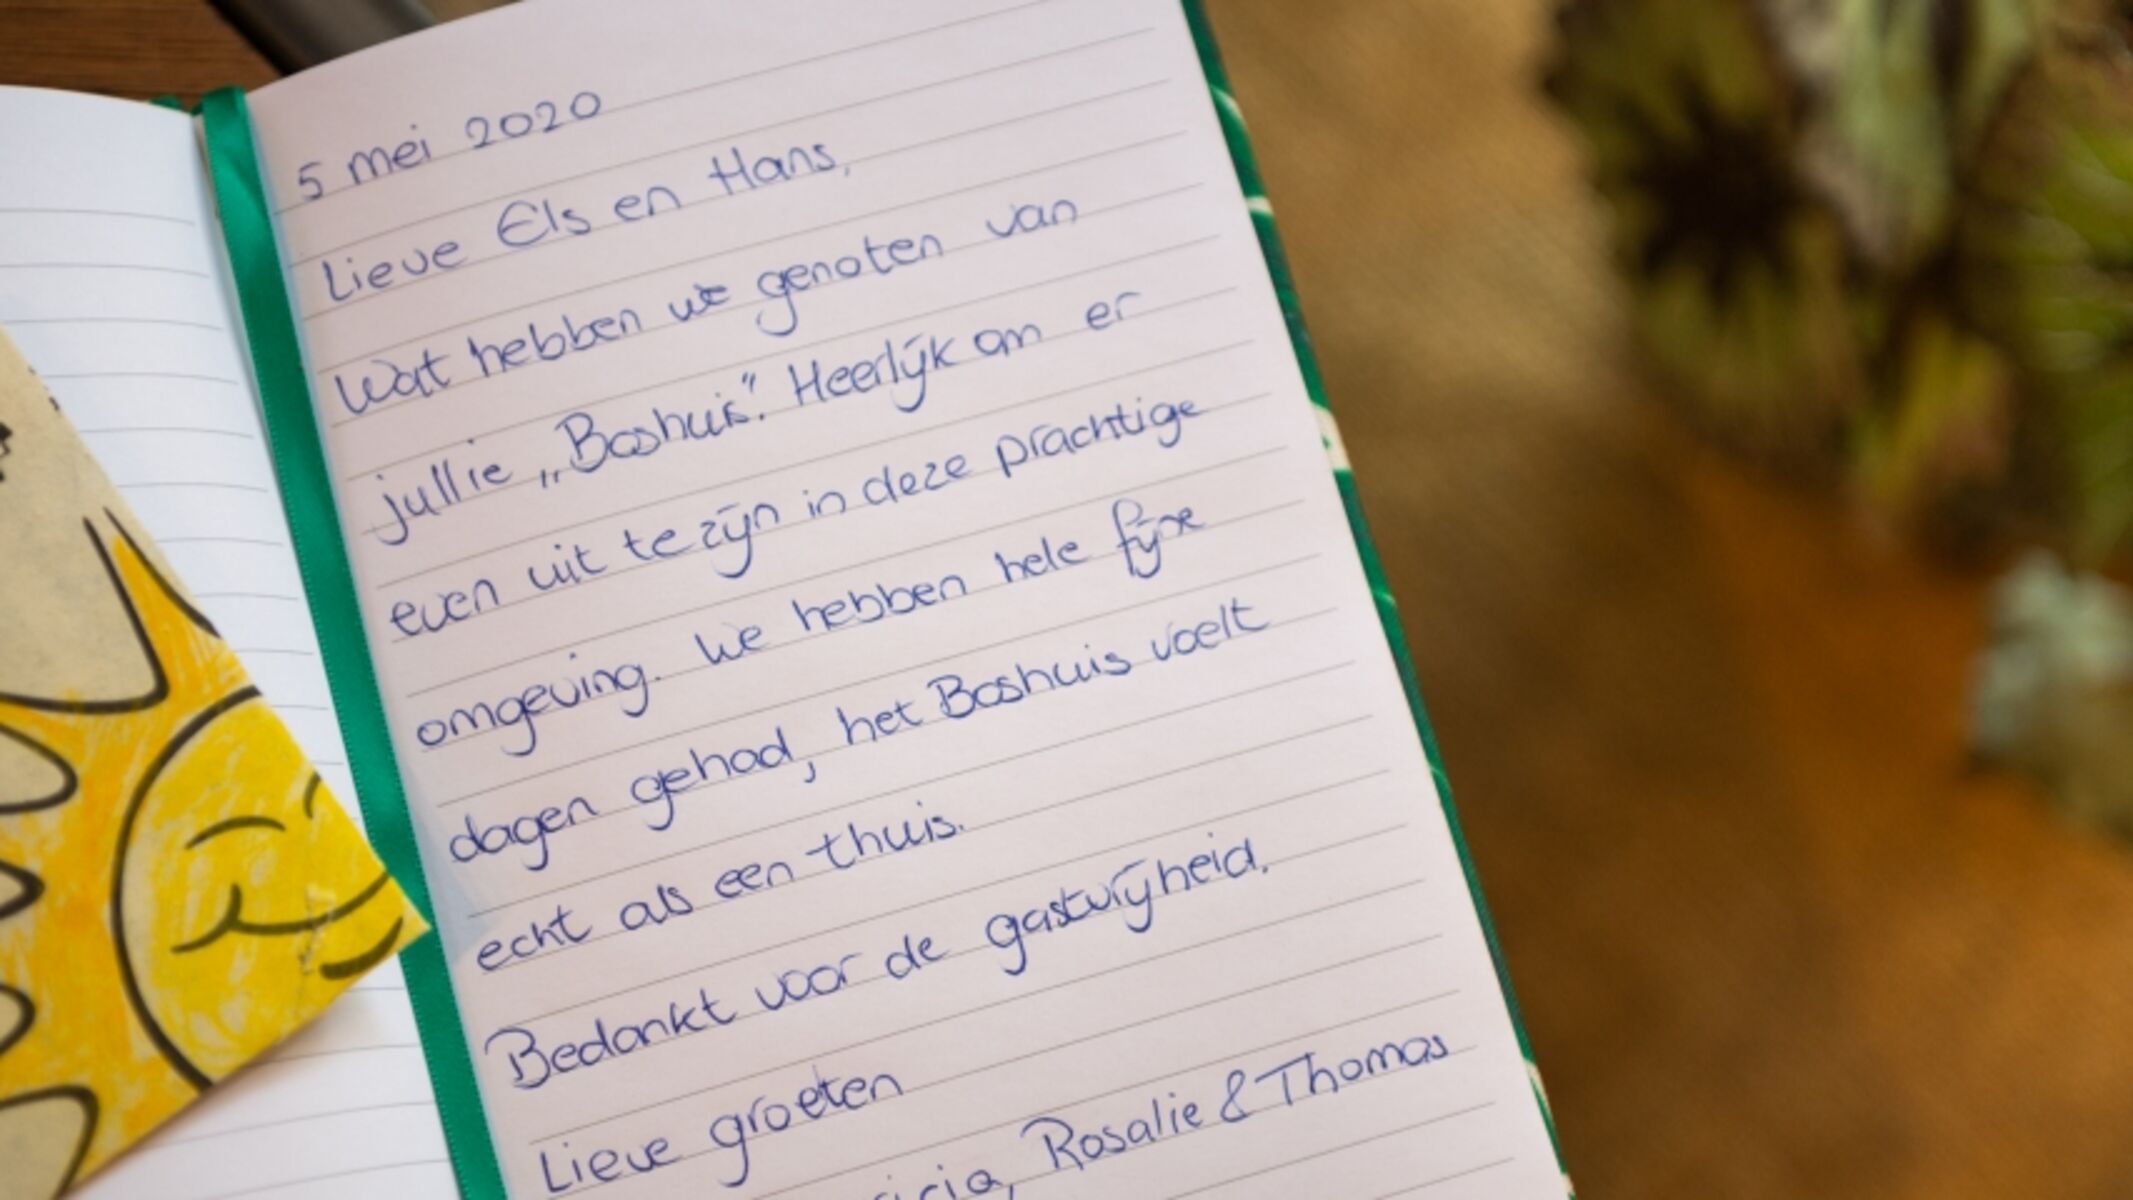 5 mei 2020
Lieve Els en Hans,
Wat hebben we genoten van
jullie „Boshuis”. Heerlijk om er
even uit te zijn in deze prachtige
omgeving. We hebben hele fijne
dagen gehad, het Boshuis voelt
echt als een thuis.
Bedankt voor de gastvrijheid.
Lieve groeten
Rosalie & Thomas